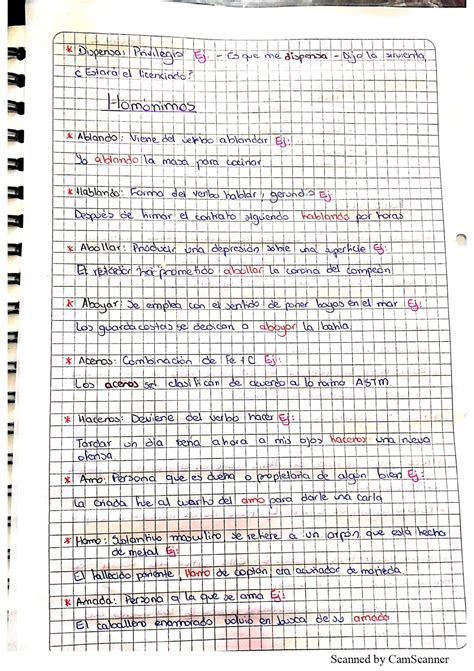 * Dispensa: Privilegio Ej: - Es que me dispensa - Dijo la sirvienta,
¿Estará el licenciado?
Homónimos
* Ablando: Viene del verbo ablandar Ej:
Yo ablando la masa para cocinar
* Hablando: Forma del verbo hablar, gerundio Ej
Después de firmar el contrato siguiendo hablando por horas
* Abollar: Producir una depresión sobre una superficie Ej:
El retador ha prometido abollar la corona del campeón
* Aboyar: Se emplea con el sentido de poner boyas en el mar Ej:
Los guarda costas se dedican a aboyar la bahía.
* Aceros: Combinación de Fe + C Ej:
Los aceros se clasifican de acuerdo a la norma ASTM.
* Haceros: Deviene del verbo hacer Ej:
Tardar un día seria ahora a mis ojos haceros una nueva
ofensa.
* Amo: Persona que es dueña o propietaria de algún bien Ej:
la criada fue al cuarto del amo para darle una carta
* Hamo: Sustantivo masculino se refiere a un arpón que está hecho
de metal Ej:
El fallecido pariente, Hamo de coptón, era acuñador de moneda
* Amada: Persona a la que se ama Ej:
El caballero enamorado volvió en busca de su amada
Scanned by CamScanner